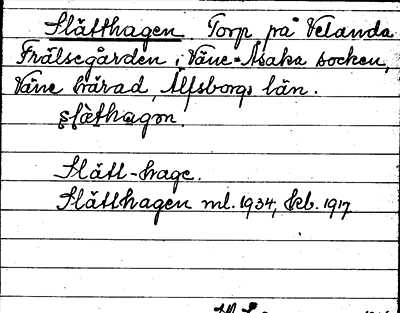 Slätthagen Torp på Velanda
Frälsegården i Väne-Åsaka socken,
Väne härad, Älfsborgs län.
slàthagon.
Slätt-hage.
Slätthagen ml. 1934, Ekb. 1917